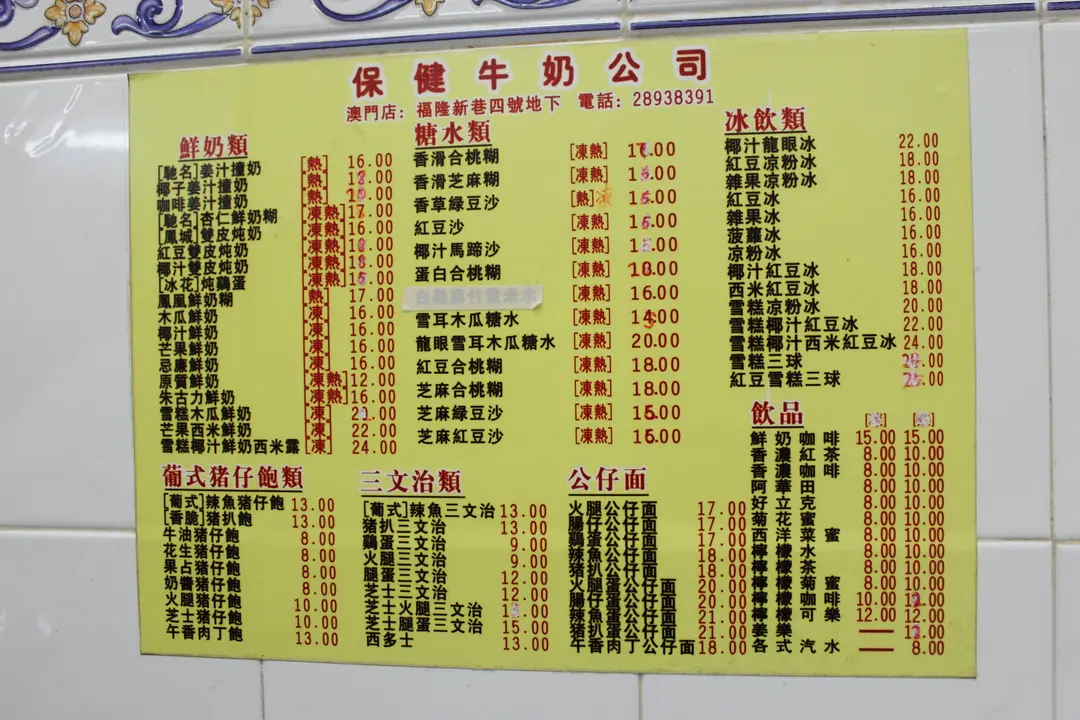 保健牛奶公司
澳門店：福隆新巷四號地下 電話：28938391
鮮奶類
[馳名]姜汁撞奶 [熱] 16.00
椰子姜汁撞奶 [熱]
咖啡姜汁撞奶 [熱]
[馳名]杏仁鮮奶糊 [凍熱] 17.00
[鳳城]雙皮炖奶 [凍熱] 16.00
紅豆雙皮炖奶 [凍熱]
椰汁雙皮炖奶 [凍熱]
[冰花]炖鷄蛋 [凍熱]
鳳凰鮮奶糊 [熱] 17.00
木瓜鮮奶 [凍] 16.00
椰汁鮮奶 [凍] 16.00
芒果鮮奶 [凍] 16.00
忌廉鮮奶 [凍] 16.00
原質鮮奶 [凍熱] 12.00
朱古力鮮奶 [凍熱] 16.00
雪糕木瓜鮮奶 [凍]
芒果西米鮮奶 [凍] 22.00
雪糕椰汁鮮奶西米露 [凍] 24.00
糖水類
香滑合桃糊 [凍熱]
香滑芝麻糊 [凍熱]
香草綠豆沙 [熱]
紅豆沙 [凍熱]
椰汁馬蹄沙 [凍熱]
蛋白合桃糊 [凍熱]
[凍熱] 16.00
雪耳木瓜糖水 [凍熱]
龍眼雪耳木瓜糖水 [凍熱] 20.00
紅豆合桃糊 [凍熱] 18.00
芝麻合桃糊 [凍熱] 18.00
芝麻綠豆沙 [凍熱]
芝麻紅豆沙 [凍熱]
冰飲類
椰汁龍眼冰 22.00
紅豆凉粉冰 18.00
雜果凉粉冰 18.00
紅豆冰 16.00
雜果冰 16.00
菠蘿冰 16.00
凉粉冰 16.00
椰汁紅豆冰 18.00
西米紅豆冰 18.00
雪糕凉粉冰 20.00
雪糕椰汁紅豆冰 22.00
雪糕椰汁西米紅豆冰 24.00
雪糕三球
紅豆雪糕三球
飲品
鮮奶咖啡 15.00 15.00
香濃紅茶 8.00 10.00
香濃咖啡 8.00 10.00
阿華田 8.00 10.00
好立克 8.00 10.00
菊花蜜 8.00 10.00
西洋菜蜜 8.00 10.00
檸檬水 8.00 10.00
檸檬茶 8.00 10.00
檸檬菊蜜 8.00 10.00
檸檬咖啡 10.00
檸檬可樂 12.00 12.00
姜樂 ——
各式汽水 —— 8.00
葡式猪仔飽類
[葡式]辣魚猪仔飽 13.00
[香脆]猪扒飽 13.00
牛油猪仔飽 8.00
花生猪仔飽 8.00
果占猪仔飽 8.00
奶醬猪仔飽 8.00
火腿猪仔飽 10.00
芝士猪仔飽 10.00
午香肉丁飽 13.00
三文治類
[葡式]辣魚三文治 13.00
猪扒三文治 13.00
鷄蛋三文治 9.00
火腿三文治 9.00
腿蛋三文治 12.00
芝士三文治 12.00
芝士火腿三文治
芝士腿蛋三文治 15.00
西多士 13.00
公仔面
火腿公仔面 17.00
腸仔公仔面 17.00
鷄蛋公仔面 17.00
辣魚公仔面 18.00
猪扒公仔面 18.00
火腿蛋公仔面 20.00
腸仔蛋公仔面 20.00
辣魚蛋公仔面 21.00
猪扒蛋公仔面 21.00
午香肉丁公仔面 18.00